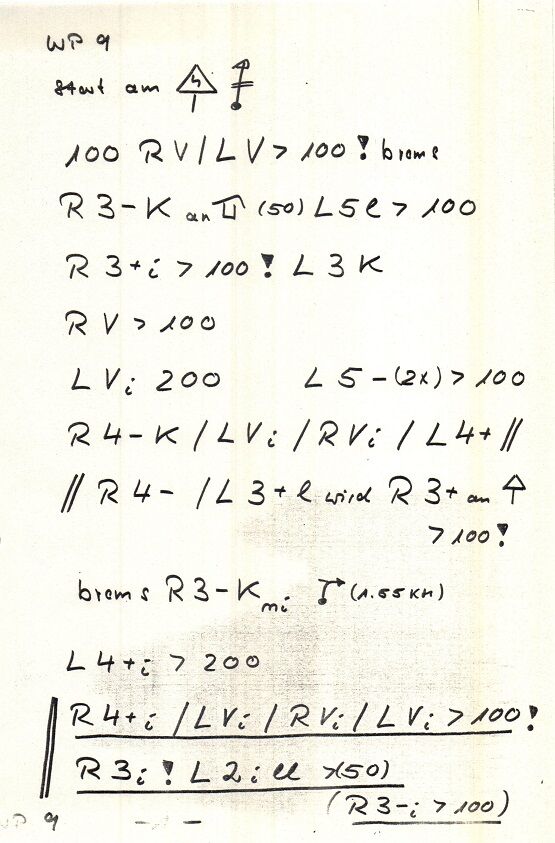 WP 9
Start am
100 RV/LV > 100 ! brems
R 3-K an (50) L5l > 100
R 3+i > 100 ! L 3 K
R V > 100
L Vi 200 L 5-(2x) > 100
R 4-K / LVi / RVi / L4+ //
// R 4- / L 3+ l wird R 3+ an
> 100 !
brems R3-K mi (1.55 KM)
L 4+i > 200
R 4+i / L Vi / R Vi / L Vi > 100 !
R 3i ! L 2i ll > (50)
(R 3-i > 100)
WP 9